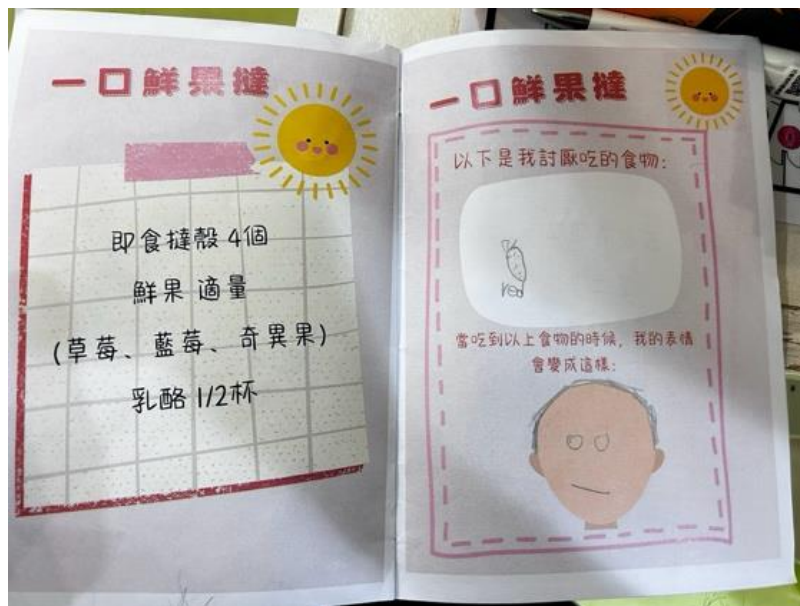 一口鮮果撻
即食撻殼 4個
鮮果 適量
(草莓、藍莓、奇異果)
乳酪 1/2杯
一口鮮果撻
以下是我討厭吃的食物:
red
當吃到以上食物的時候, 我的表情
會變成這樣: